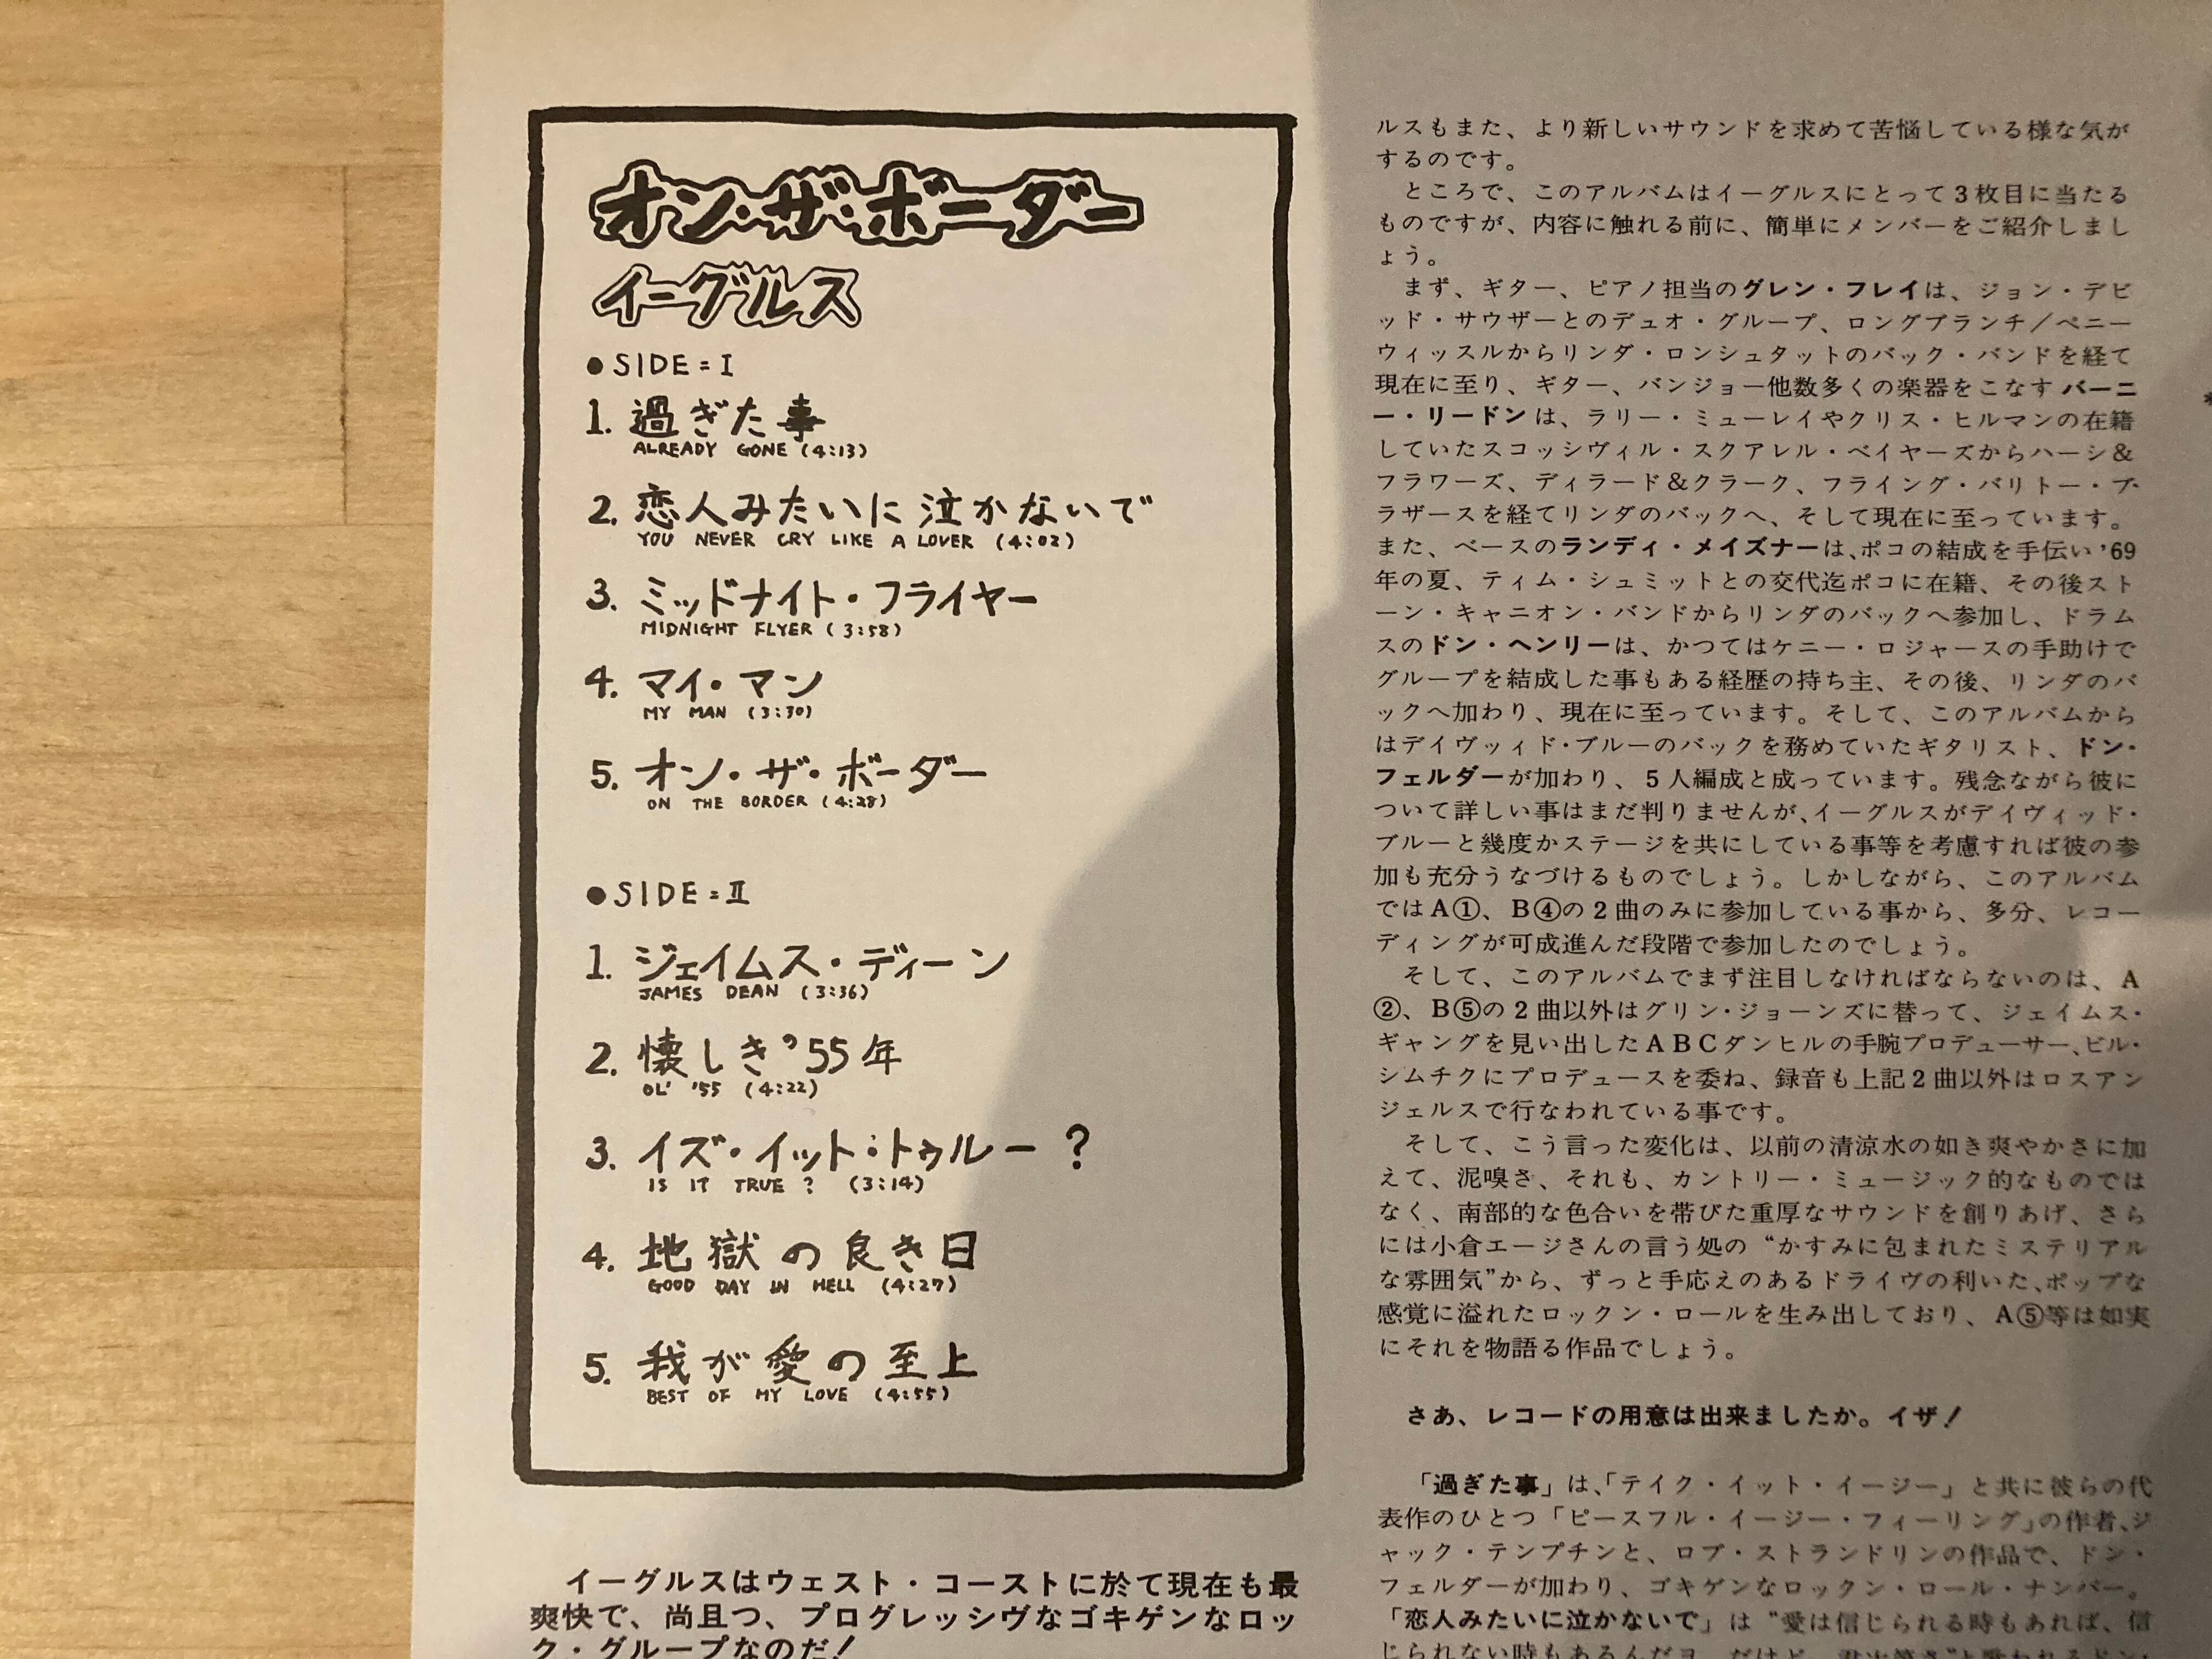 オン・ザ・ボーダー
イーグルス
●SIDE=I
1. 過ぎた事
ALREADY GONE (4:13)
2. 恋人みたいに泣かないで
YOU NEVER CRY LIKE A LOVER (4:02)
3. ミッドナイト・フライヤー
MIDNIGHT FLYER (3:58)
4. マイ・マン
MY MAN (3:30)
5. オン・ザ・ボーダー
ON THE BORDER (4:28)
●SIDE=II
1. ジェイムス・ディーン
JAMES DEAN (3:36)
2. 懐しき'55年
OL' '55 (4:22)
3. イズ・イット・トゥルー ?
IS IT TRUE ? (3:14)
4. 地獄の良き日
GOOD DAY IN HELL (4:27)
5. 我が愛の至上
BEST OF MY LOVE (4:55)
イーグルスはウェスト・コーストに於て現在も最
爽快で、尚且つ、プログレッシヴなゴキゲンなロッ
ク・グループなのだ！
ルスもまた、より新しいサウンドを求めて苦悩している様な気が
するのです。
ところで、このアルバムはイーグルスにとって3枚目に当たる
ものですが、内容に触れる前に、簡単にメンバーをご紹介しまし
ょう。
まず、ギター、ピアノ担当のグレン・フレイは、ジョン・デビ
ッド・サウザーとのデュオ・グループ、ロングブランチ／ペニー
ウィッスルからリンダ・ロンシュタットのバック・バンドを経て
現在に至り、ギター、バンジョー他数多くの楽器をこなすバーニ
ー・リードンは、ラリー・ミューレイやクリス・ヒルマンの在籍
していたスコッシヴィル・スクアレル・ベイヤーズからハーシ&
フラワーズ、ディラード&クラーク、フライング・バリトー・ブ
ラザースを経てリンダのバックへ、そして現在に至っています。
また、ベースのランディ・メイズナーは、ポコの結成を手伝い'69
年の夏、ティム・シュミットとの交代迄ポコに在籍、その後スト
ーン・キャニオン・バンドからリンダのバックへ参加し、ドラム
スのドン・ヘンリーは、かつてはケニー・ロジャースの手助けで
グループを結成した事もある経歴の持ち主、その後、リンダのバ
ックへ加わり、現在に至っています。そして、このアルバムから
はデイヴッィド・ブルーのバックを務めていたギタリスト、ドン・
フェルダーが加わり、5人編成と成っています。残念ながら彼に
ついて詳しい事はまだ判りませんが、イーグルスがデイヴィッド・
ブルーと幾度かステージを共にしている事等を考慮すれば彼の参
加も充分うなづけるものでしょう。しかしながら、このアルバム
ではA①、B④の2曲のみに参加している事から、多分、レコー
ディングが可成進んだ段階で参加したのでしょう。
そして、このアルバムでまず注目しなければならないのは、A
②、B⑤の2曲以外はグリン・ジョーンズに替って、ジェイムス・
ギャングを見い出したABCダンヒルの手腕プロデューサー、ビル・
シムチクにプロデュースを委ね、録音も上記2曲以外はロスアン
ジェルスで行なわれている事です。
そして、こう言った変化は、以前の清涼水の如き爽やかさに加
えて、泥嗅さ、それも、カントリー・ミュージック的なものでは
なく、南部的な色合いを帯びた重厚なサウンドを創りあげ、さら
には小倉エージさんの言う処の“かすみに包まれたミステリアル
な雰囲気”から、ずっと手応えのあるドライヴの利いた、ポップな
感覚に溢れたロックン・ロールを生み出しており、A⑤等は如実
にそれを物語る作品でしょう。
さあ、レコードの用意は出来ましたか。イザ！
「過ぎた事」は、「テイク・イット・イージー」と共に彼らの代
表作のひとつ「ピースフル・イージー・フィーリング」の作者、ジ
ャック・テンプチンと、ロブ・ストランドリンの作品で、ドン・
フェルダーが加わり、ゴキゲンなロックン・ロール・ナンバー。
「恋人みたいに泣かないで」は“愛は信じられる時もあれば、信
じられない時もあるんだヨ